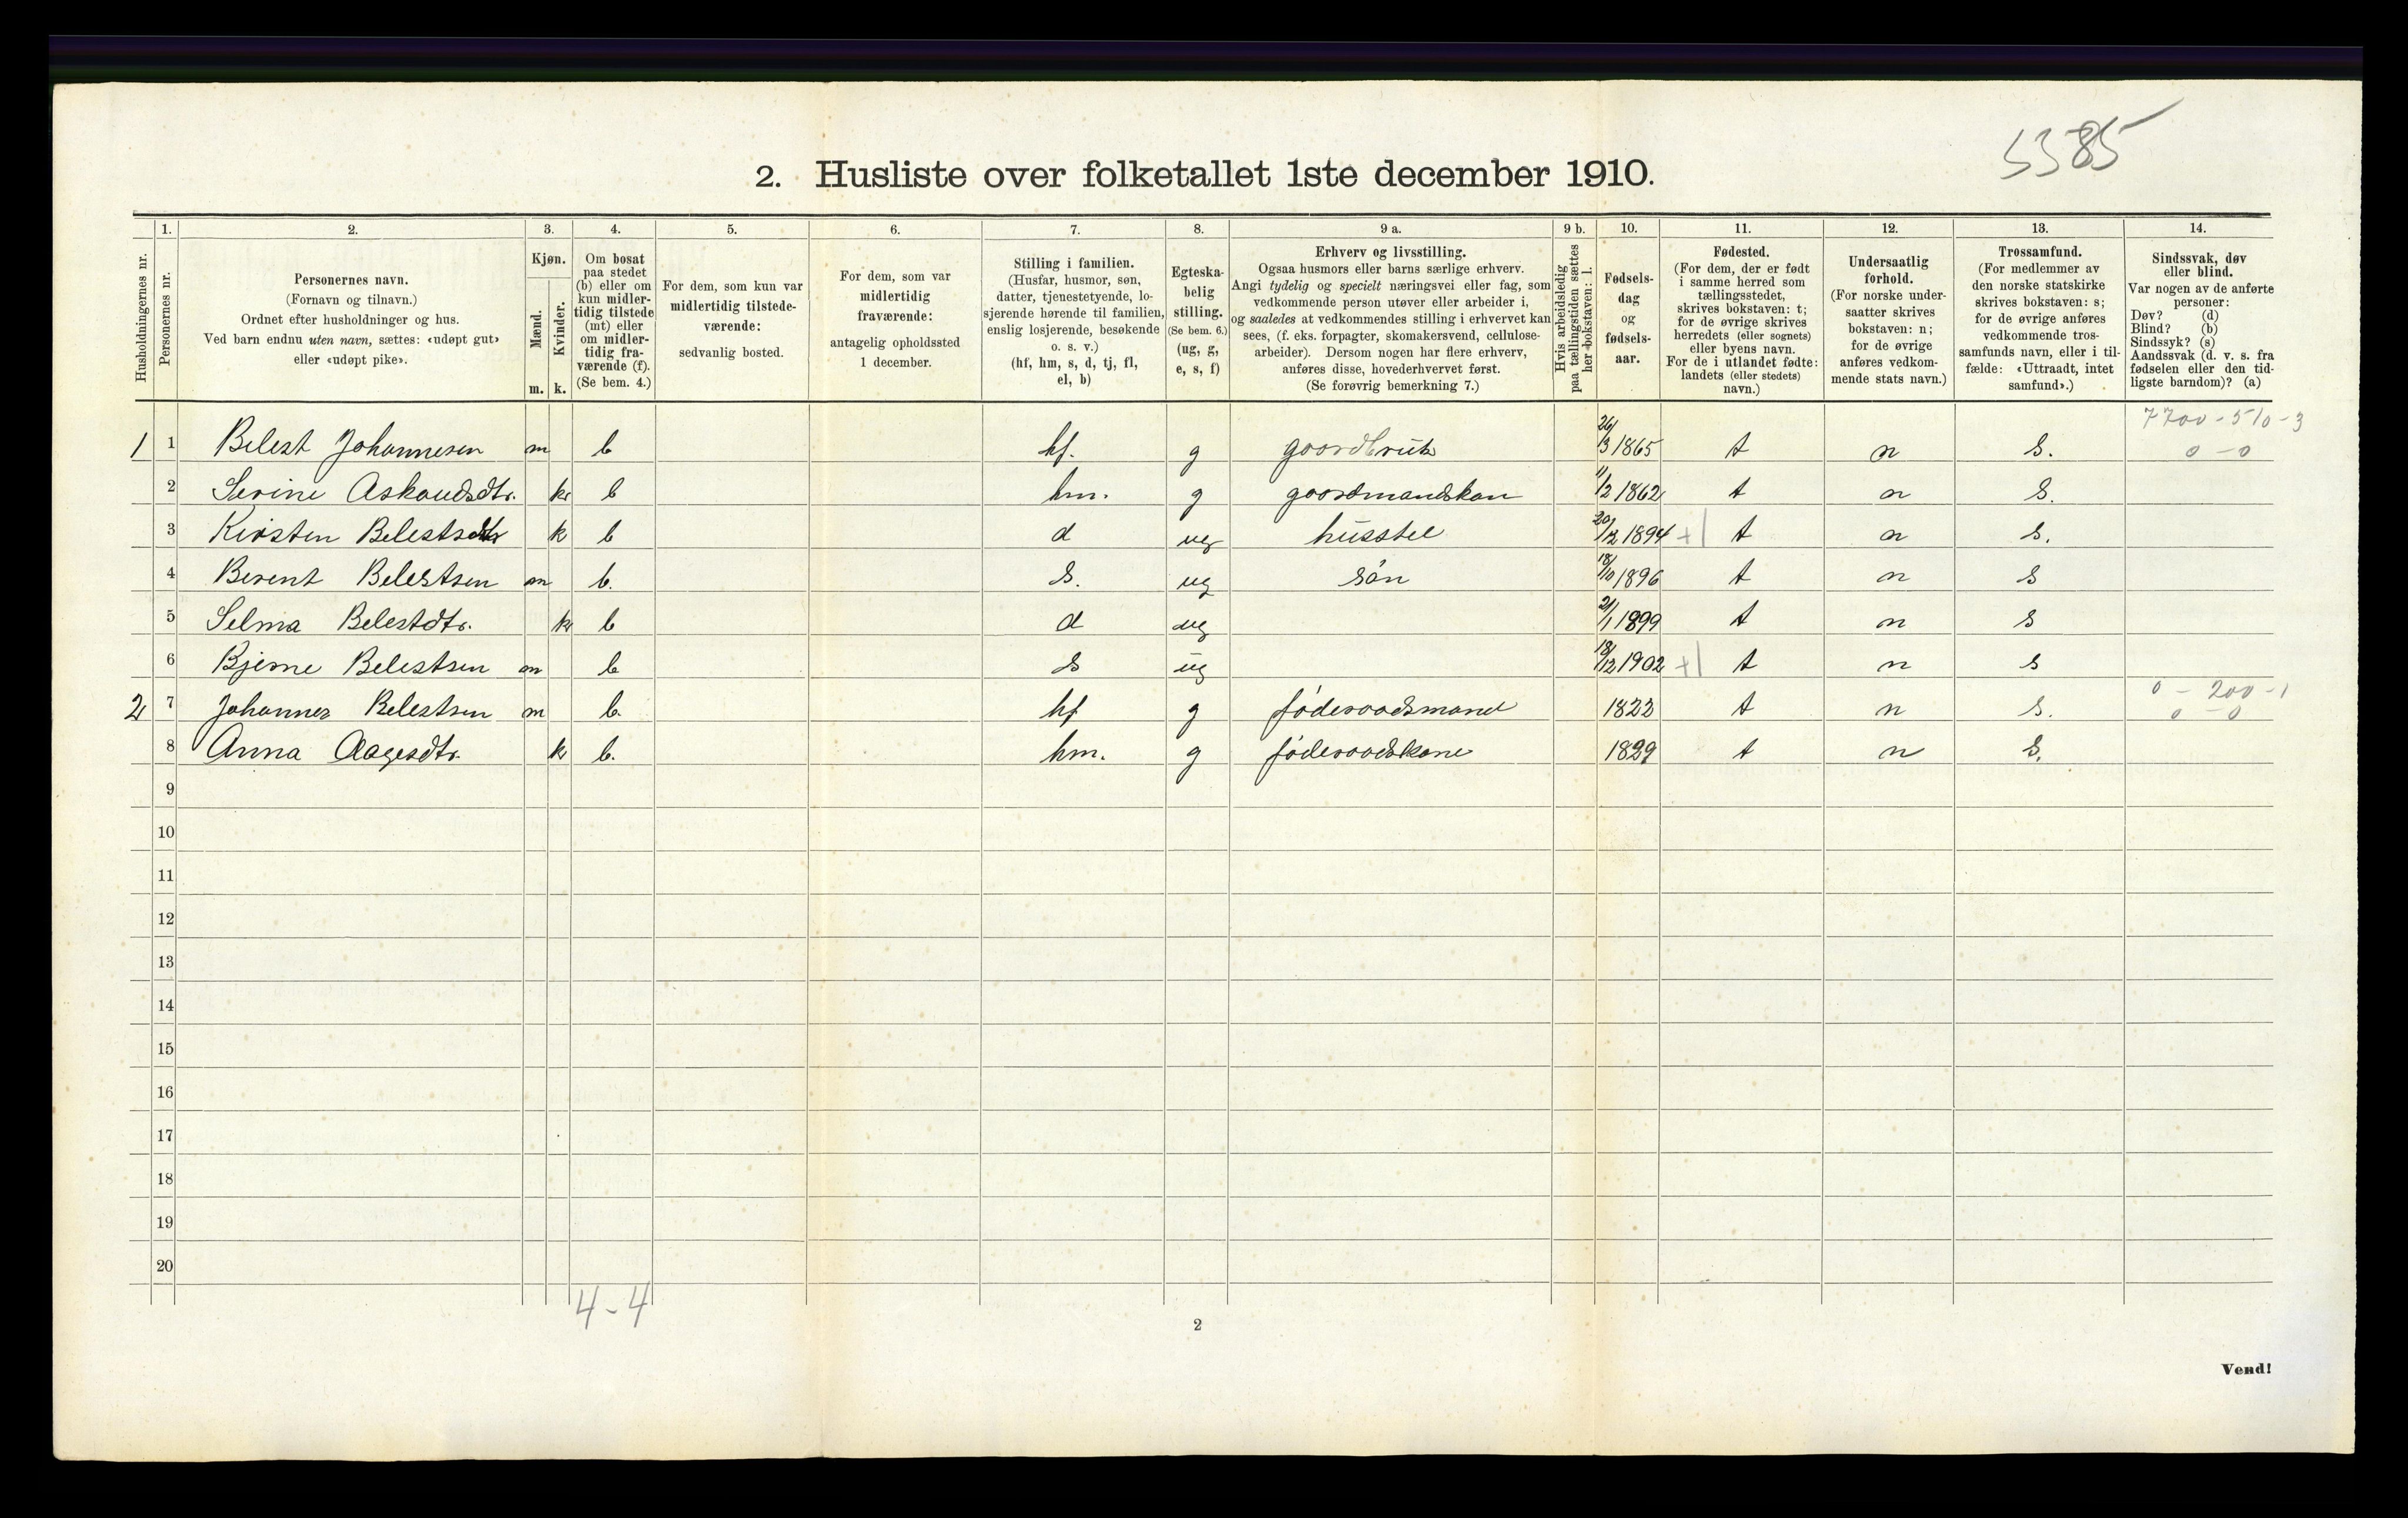 5385
2. Husliste over folketallet 1ste december 1910.
1. 2. 3. 4. 5. 6. 7. 8. 9 a. 9 b. 10. 11. 12. 13. 14.
Husholdningernes nr.
Personernes nr.
Personernes navn.
(Fornavn og tilnavn.)
Ordnet efter husholdninger og hus.
Ved barn endnu uten navn, sættes: «udøpt gut»
eller «udøpt pike».
Kjøn.
Mænd.
Kvinder.
m. k.
Om bosat
paa stedet
(b) eller om
kun midler-
tidig tilstede
(mt) eller
om midler-
tidig fra-
værende (f).
(Se bem. 4.)
For dem, som kun var
midlertidig tilstede-
værende:
sedvanlig bosted.
For dem, som var
midlertidig
fraværende:
antagelig opholdssted
1 december.
Stilling i familien.
(Husfar, husmor, søn,
datter, tjenestetyende, lo-
sjerende hørende til familien,
enslig losjerende, besøkende
o. s. v.)
(hf, hm, s, d, tj, fl,
el, b)
Egteska-
belig
stilling.
(Se bem. 6.)
(ug, g,
e, s, f)
Erhverv og livsstilling.
Ogsaa husmors eller barns særlige erhverv.
Angi tydelig og specielt næringsvei eller fag, som
vedkommende person utøver eller arbeider i,
og saaledes at vedkommendes stilling i erhvervet kan
sees, (f. eks. forpagter, skomakersvend, cellulose-
arbeider). Dersom nogen har flere erhverv,
anføres disse, hovederhvervet først.
(Se forøvrig bemerkning 7.)
Hvis arbeidsledig
paa tællingstiden sættes
her bokstaven: l.
Fødsels-
dag
og
fødsels-
aar.
Fødested.
(For dem, der er født
i samme herred som
tællingsstedet,
skrives bokstaven: t;
for de øvrige skrives
herredets (eller sognets)
eller byens navn.
For de i utlandet fødte:
landets (eller stedets)
navn.)
Undersaatlig
forhold.
(For norske under-
saatter skrives
bokstaven: n;
for de øvrige
anføres vedkom-
mende stats navn.)
Trossamfund.
(For medlemmer av
den norske statskirke
skrives bokstaven: s;
for de øvrige anføres
vedkommende tros-
samfunds navn, eller i til-
fælde: «Uttraadt, intet
samfund».)
Sindssvak, døv
eller blind.
Var nogen av de anførte
personer:
Døv? (d)
Blind? (b)
Sindssyk? (s)
Aandssvak (d. v. s. fra
fødselen eller den tid-
ligste barndom)? (a)
7700-510-3
1 1 Belest Johannesen m b hf. g goordbruk 26/3 1865 t n S. 0-0
2 Serine Askoudsdtr. k b hm. g goordmandskon 11/2 1862 t n S.
3 Kirsten Belestsdtr k b d ug husstel 20/12 1894 +| t n S.
4 Berent Belestsen m b. S. ug sön 18/10 1896 t n S
5 Selma Belestdtr. k b d ug 21/1 1899 t n S
6 Bjerne Belestsen m b s ug 18/12 1902 +| t n S
0-200-1
2 7 Johannes Belestsen m b. hf g föderaadsmand 1822 t n S. 0-0
8 Anna Aagesdtr. k b. hm. g föderaadskone 1829 t n S.
9
10
11
12
13
14
15
16
17
18
19
20
4-4
2
Vend!